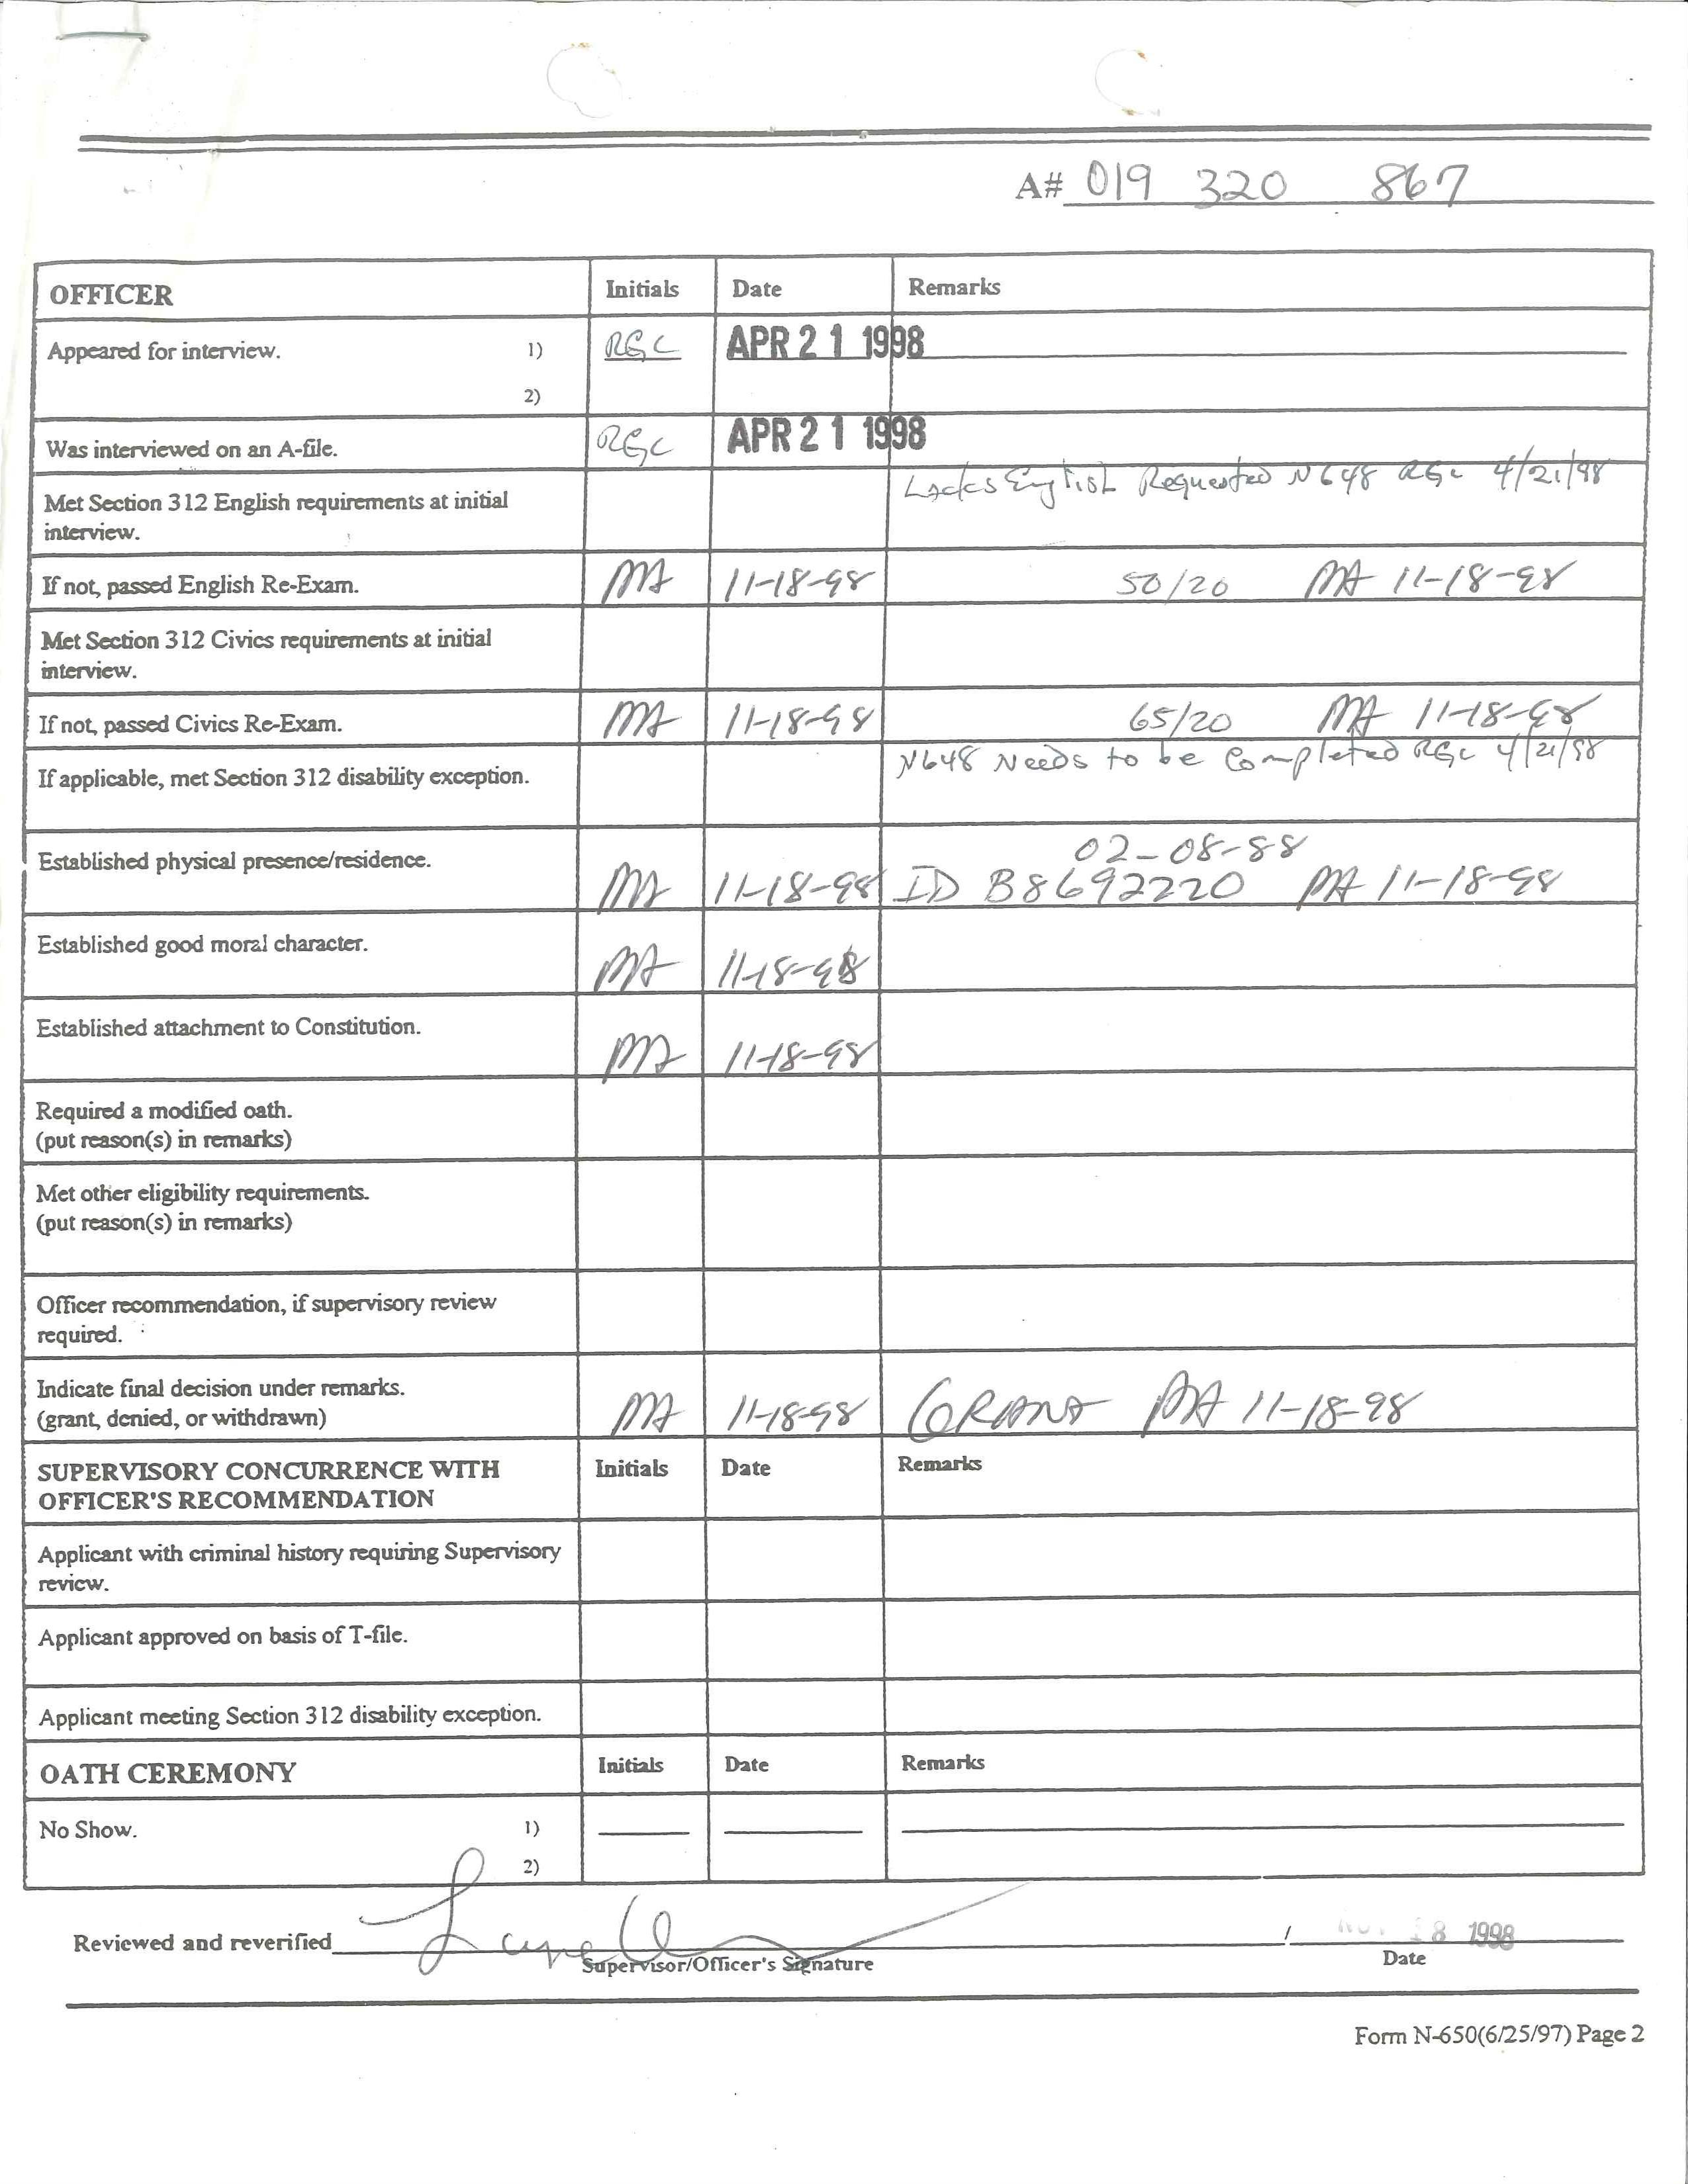 A# 019 320 867
OFFICER Initials Date Remarks
Appeared for interview. 1) RGC APR 21 1998
2)
Was interviewed on an A-file. RGC APR 21 1998
Met Section 312 English requirements at initial Lacks English Requested N648 RGC 4/21/98
interview.
If not, passed English Re-Exam. MA 11-18-98 50/20 MA 11-18-98
Met Section 312 Civics requirements at initial
interview.
If not, passed Civics Re-Exam. MA 11-18-98 65/20 MA 11-18-98
If applicable, met Section 312 disability exception. N648 Needs to be Completed RGC 4/21/98
Established physical presence/residence. 02-08-88
MA 11-18-98 ID B8692220 MA 11-18-98
Established good moral character.
MA 11-18-98
Established attachment to Constitution.
MA 11-18-98
Required a modified oath.
(put reason(s) in remarks)
Met other eligibility requirements.
(put reason(s) in remarks)
Officer recommendation, if supervisory review
required.
Indicate final decision under remarks.
(grant, denied, or withdrawn) MA 11-18-98 GRANT MA 11-18-98
SUPERVISORY CONCURRENCE WITH Initials Date Remarks
OFFICER'S RECOMMENDATION
Applicant with criminal history requiring Supervisory
review.
Applicant approved on basis of T-file.
Applicant meeting Section 312 disability exception.
OATH CEREMONY Initials Date Remarks
No Show. 1)
2)
Reviewed and reverified / 18 1998
Supervisor/Officer's Signature Date
Form N-650(6/25/97) Page 2